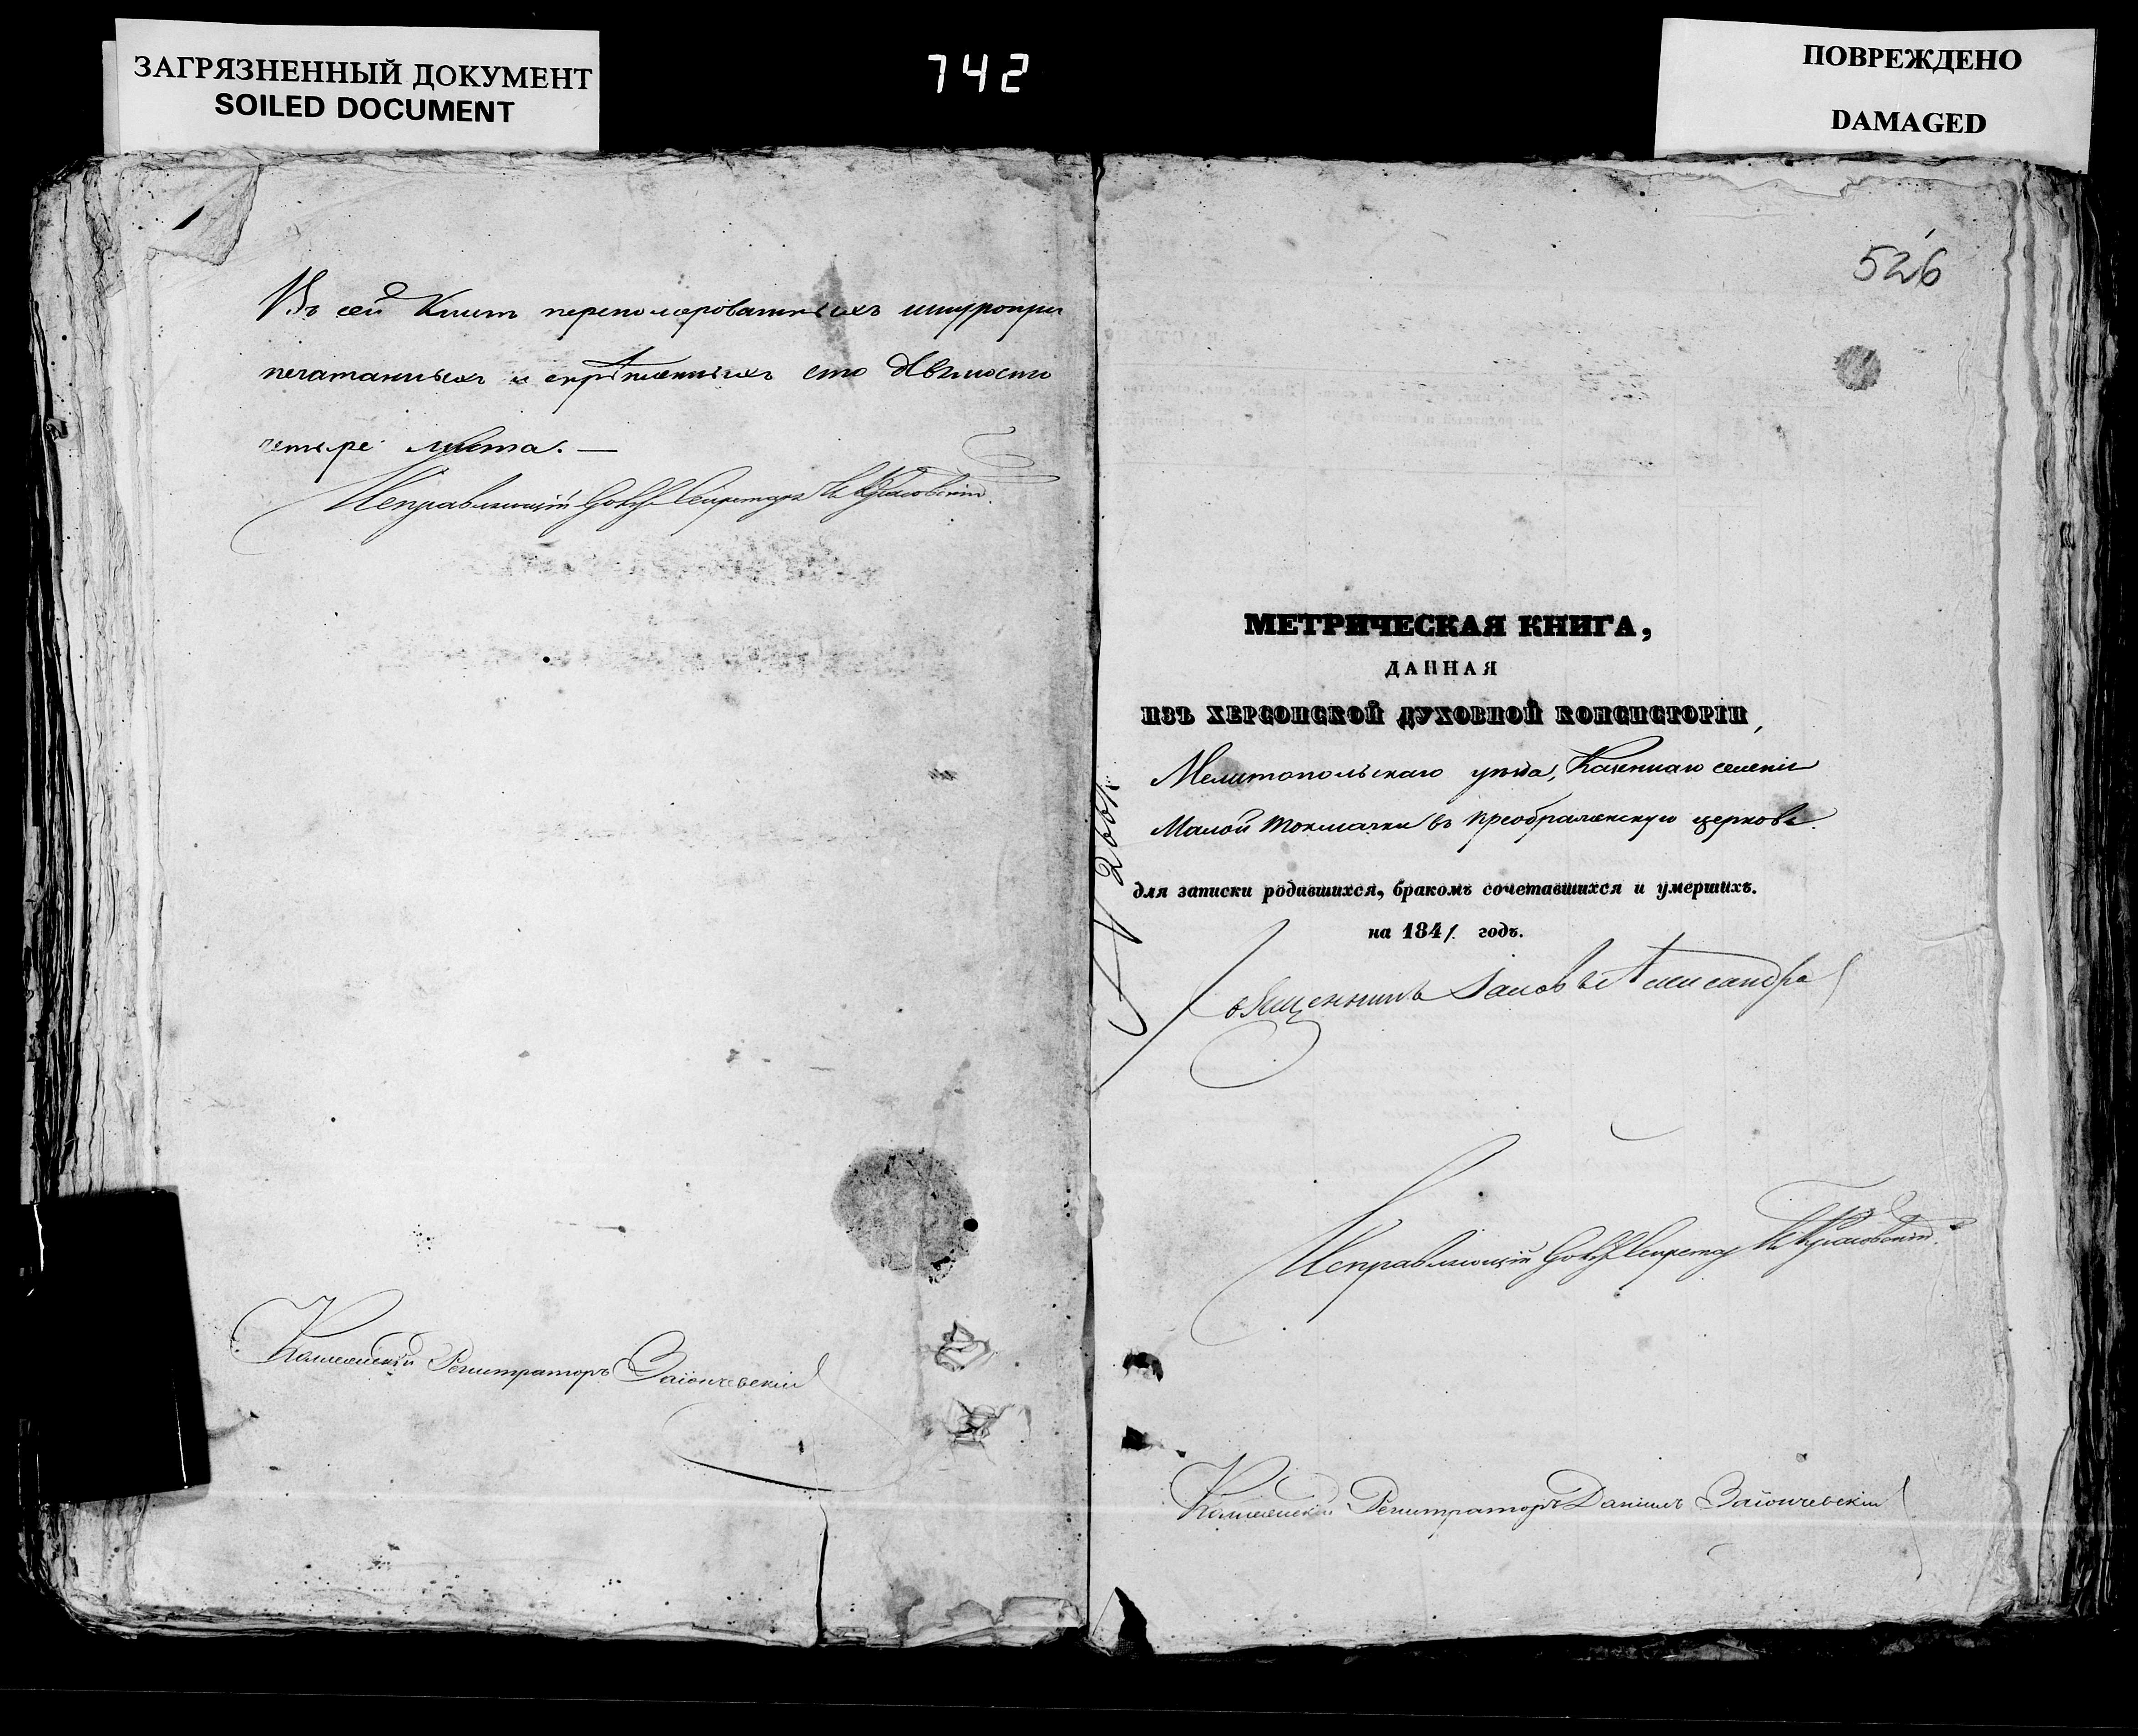 ЗАГРЯЗНЕННЫЙ ДОКУМЕНТ
SOILED DOCUMENT
742
ПОВРЕЖДЕНО
DAMAGED
Въ сей Книгѣ перенумерованныхъ шнуропри
печатанныхъ и скрѣпленныхъ сто девяносто
четыре листа. —
Исправляющій Секретаря
Коллежскій Регистраторъ Заіончевскій
526
МЕТРИЧЕСКАЯ КНИГА,
ДАННАЯ
ИЗЪ ХЕРСОНСКОЙ ДУХОВНОЙ КОНСИСТОРІИ,
Мелитопольскаго уѣзда, Казеннаго селенія
Малой Токмачки въ Преображенскую церковь.
для записки родившихся, бракомъ сочетавшихся и умершихъ.
на 1841 годъ.
священникъ Александра
Исправляющій Секретар
Коллежскій Регистраторъ Даніилъ Заіончевскій